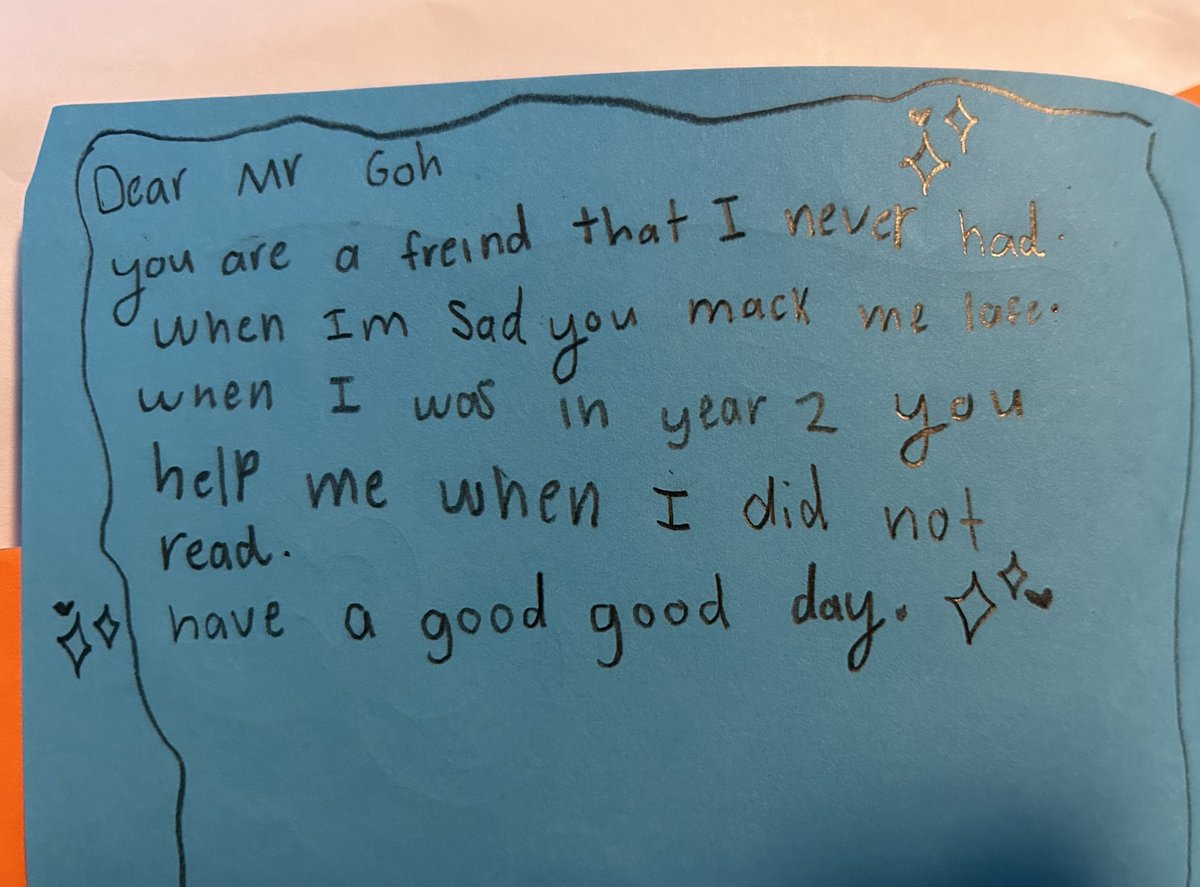 Dear Mr Goh
you are a freind that I never had.
when Im sad you mack me lafe.
when I was in year 2 you
help me when I did not
read.
have a good good day.